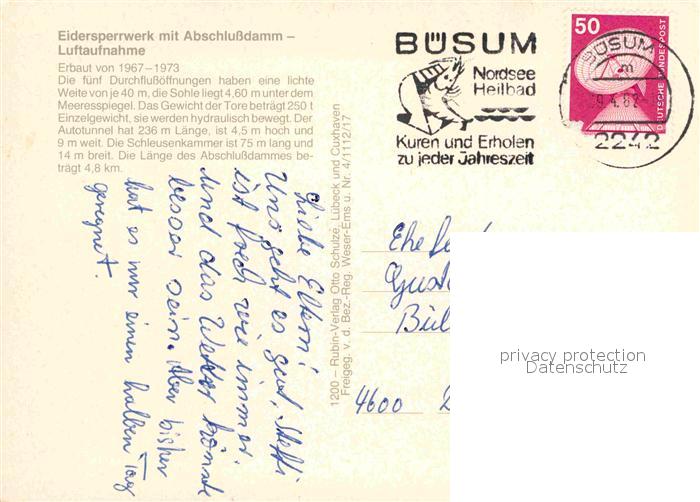 Eidersperrwerk mit Abschlußdamm –
Luftaufnahme
Erbaut von 1967–1973
Die fünf Durchflußöffnungen haben eine lichte
Weite von je 40 m, die Sohle liegt 4,60 m unter dem
Meeresspiegel. Das Gewicht der Tore beträgt 250 t
Einzelgewicht, sie werden hydraulisch bewegt. Der
Autotunnel hat 236 m Länge, ist 4,5 m hoch und
9 m weit. Die Schleusenkammer ist 75 m lang und
14 m breit. Die Länge des Abschlußdammes be-
trägt 4,8 km.
Liebe Eltern!
Uns geht es gut, Steffi
ist frech wie immer,
und das Wetter könnte
besser sein. Aber bisher
hat es nur einen halben Tag
geregnet.
1200 – Rubin-Verlag Otto Schulze, Lübeck und Cuxhaven
Freigeg. v. d. Bez.-Reg. Weser-Ems u. Nr. 4/1112/17
BÜSUM
Nordsee
Heilbad
Kuren und Erholen
zu jeder Jahreszeit
50
DEUTSCHE BUNDESPOST
BÜSUM
m
9.4.82
2242
Ehe
Gust
Bül
4600
privacy protection
Datenschutz